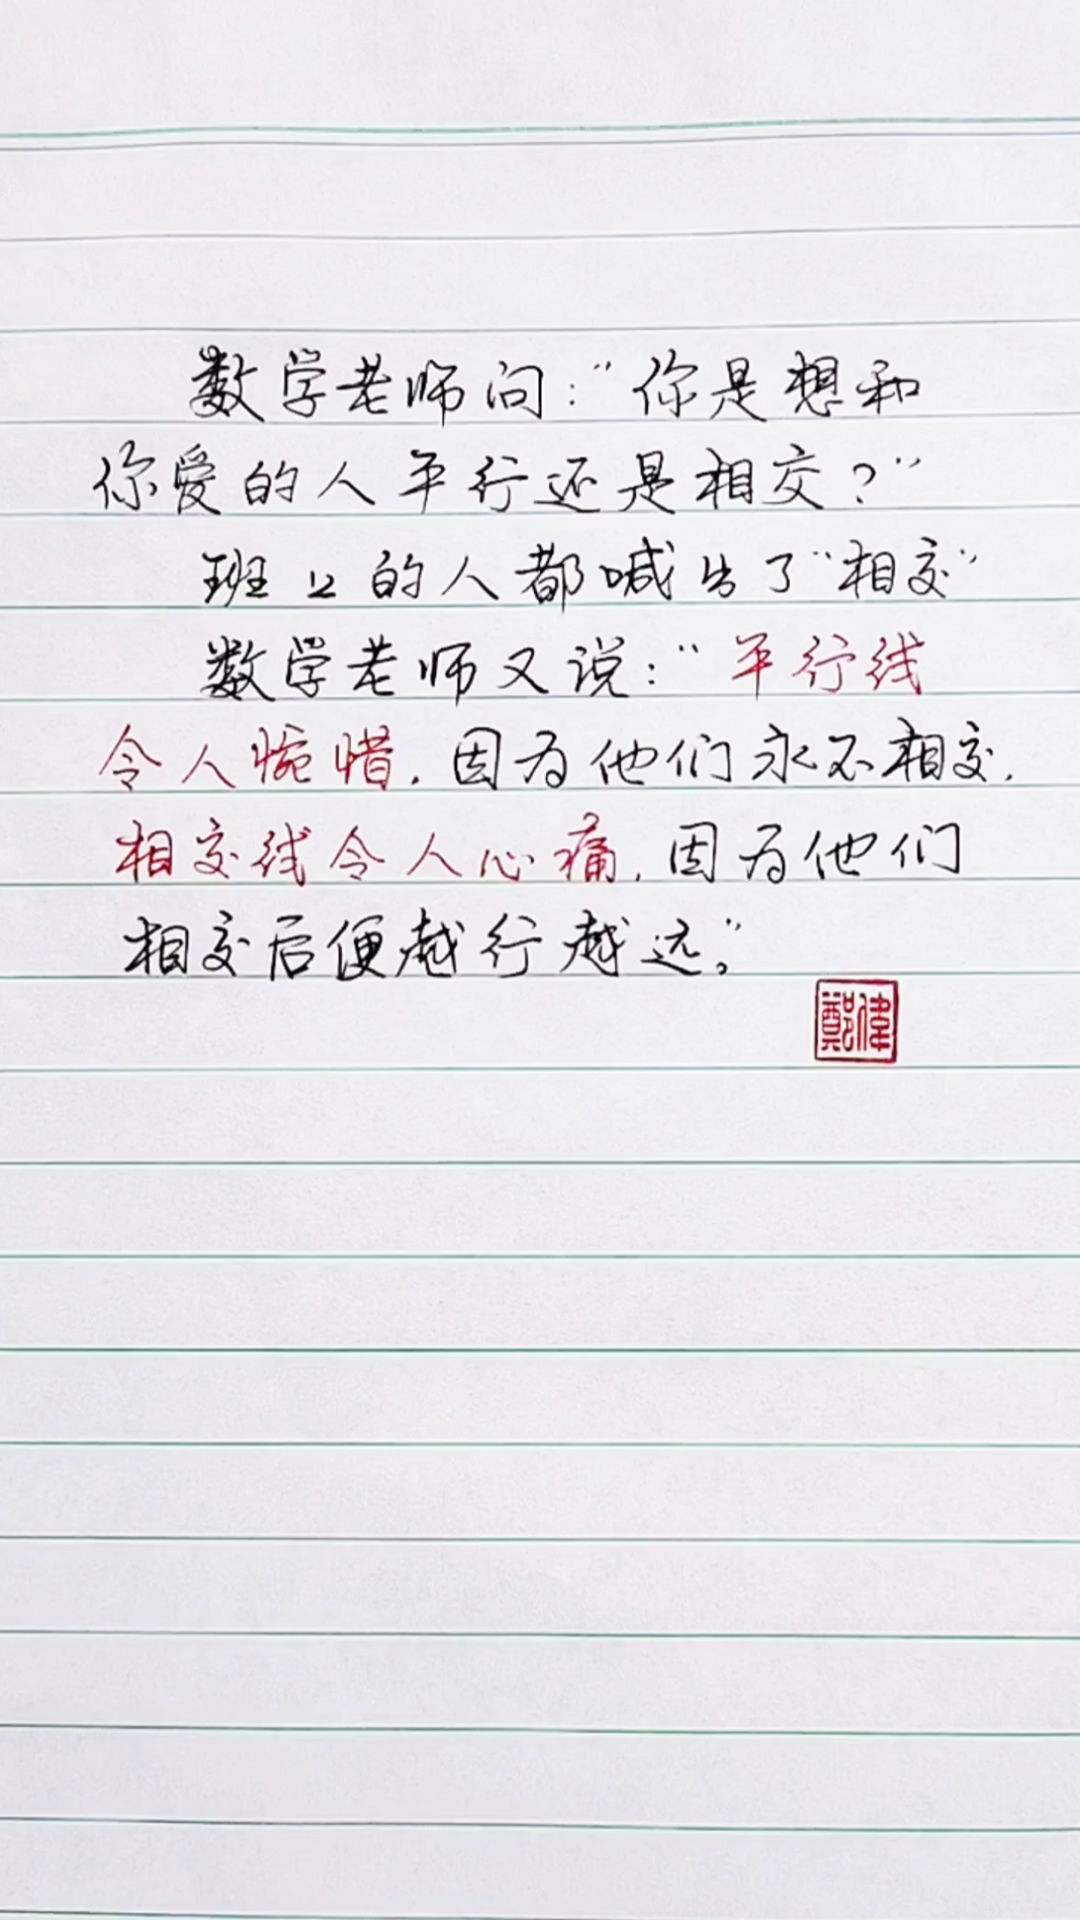 数学老师问：“你是想和
你爱的人平行还是相交？”
班上的人都喊出了“相交”
数学老师又说：“平行线
令人惋惜，因为他们永不相交，
相交线令人心痛，因为他们
相交后便越行越远。”
鄭偉